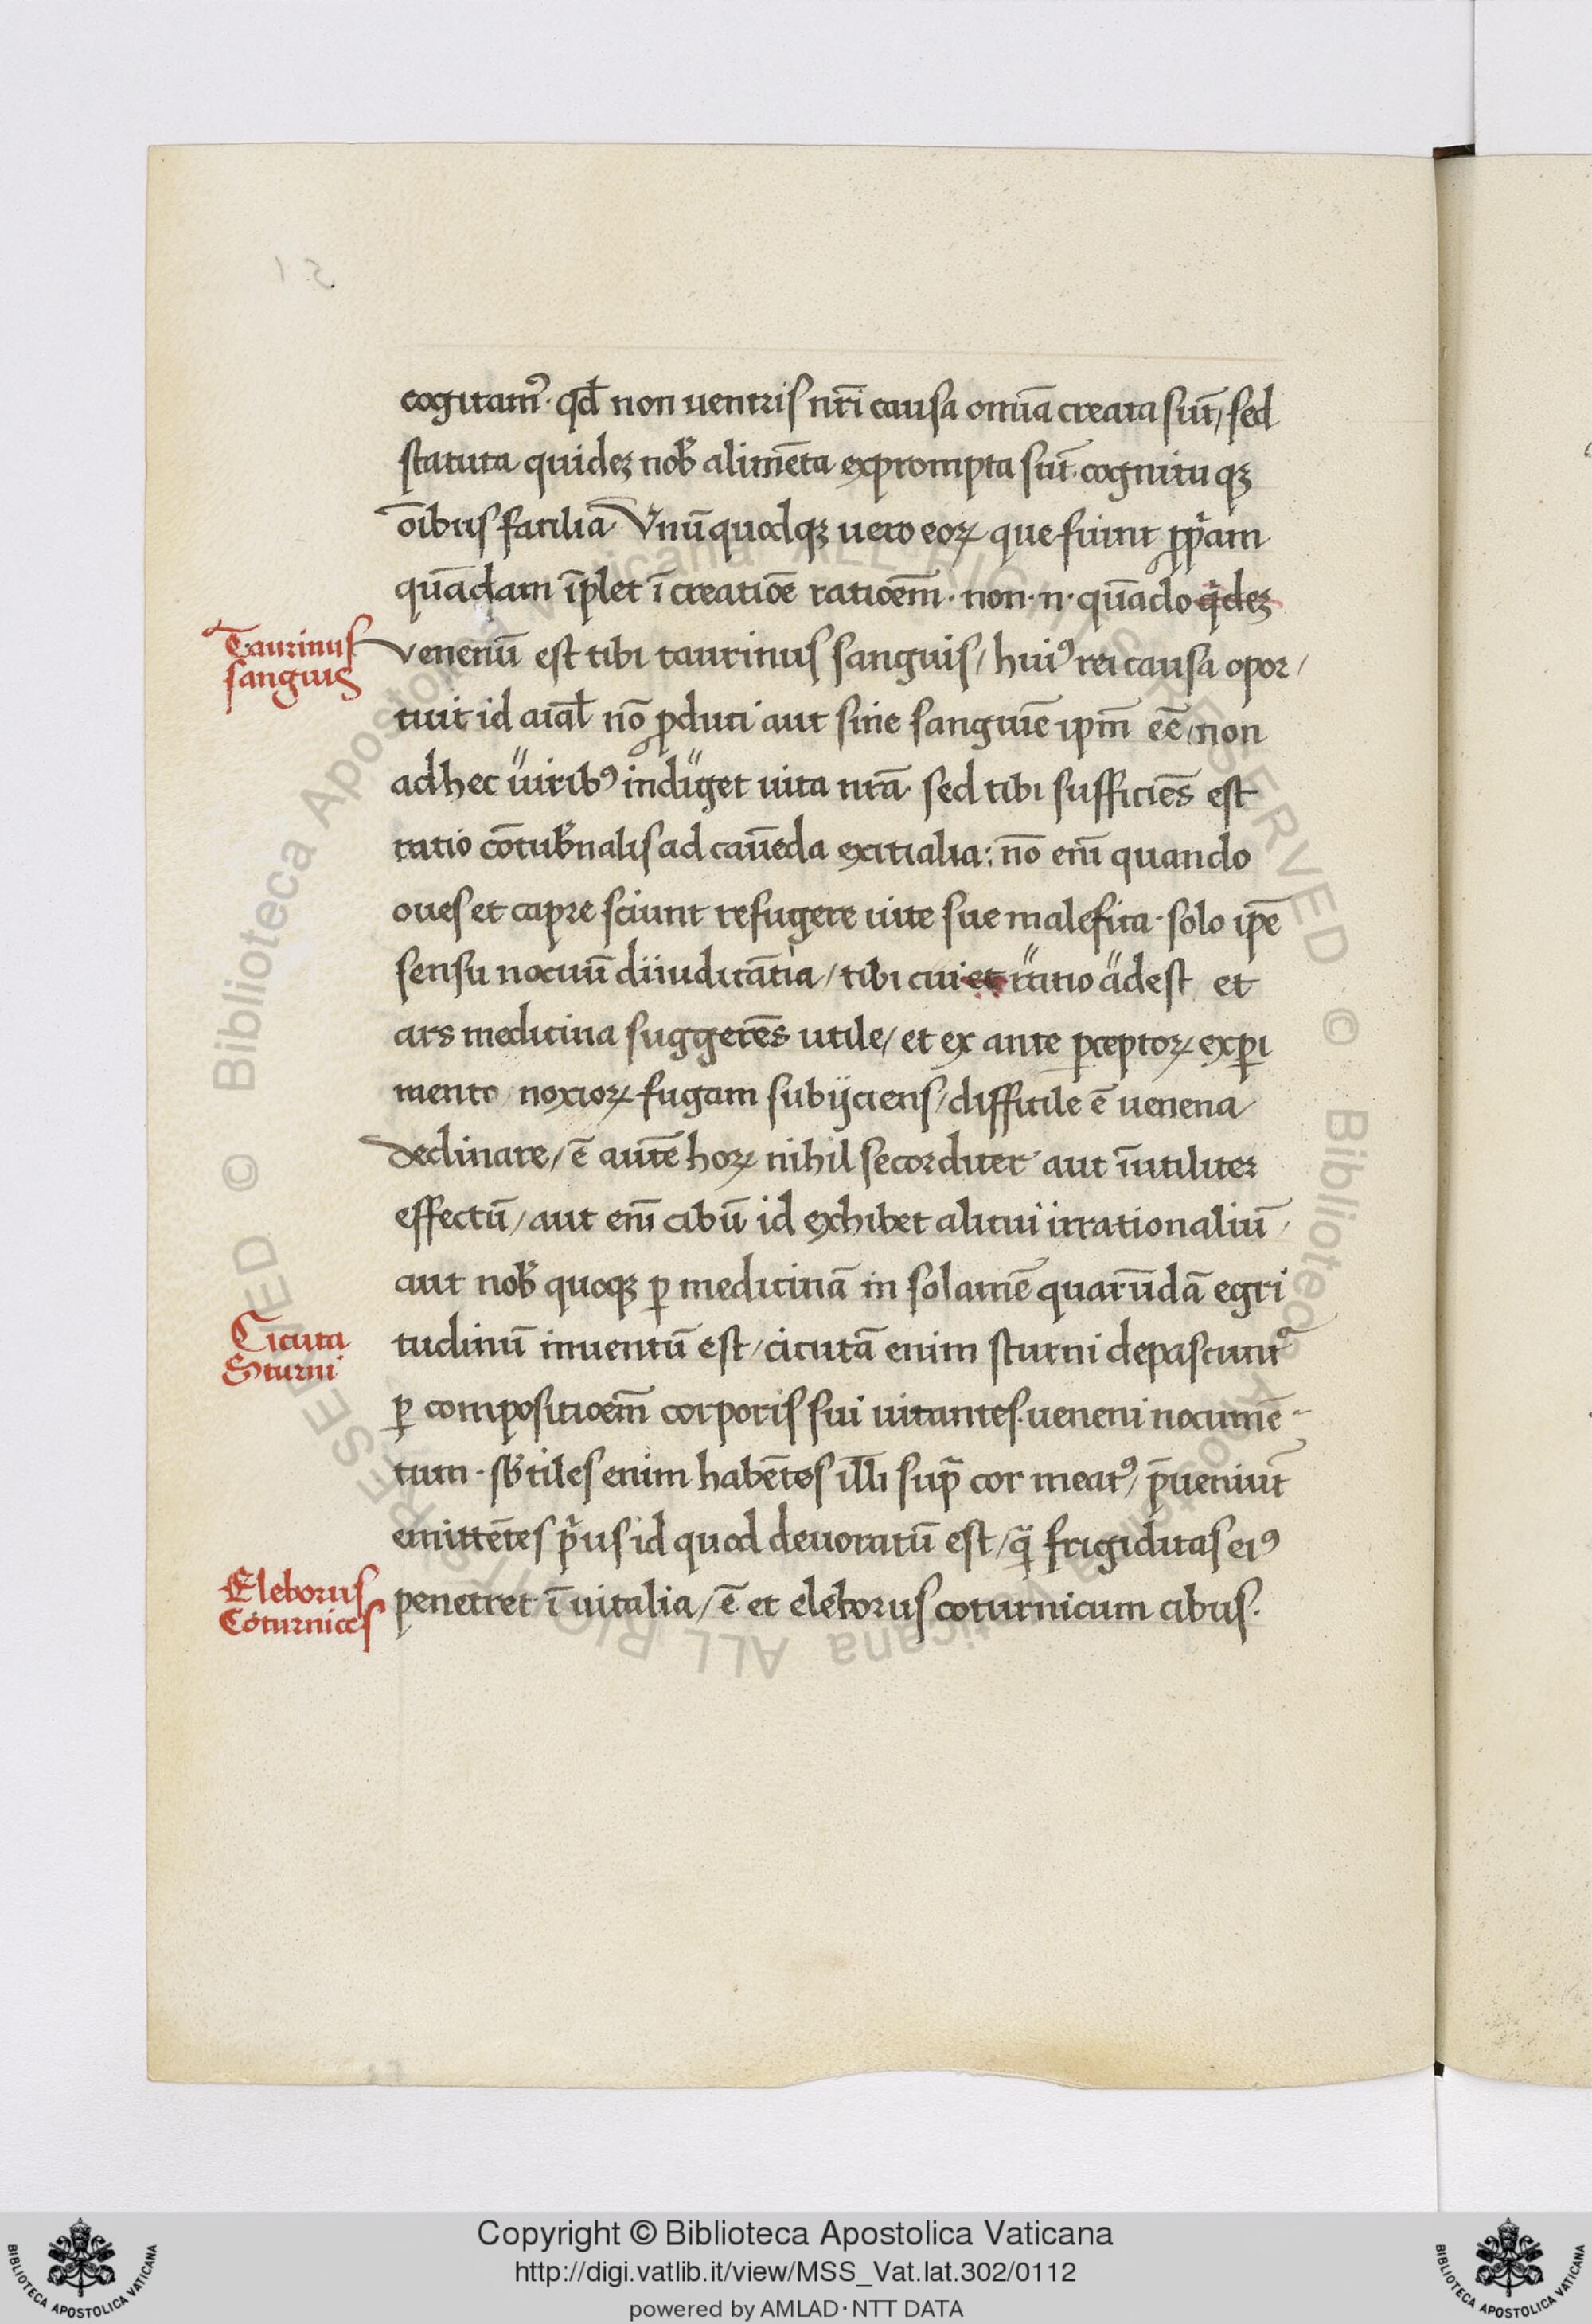 cogitam᷒· qd̄ non uentris nr̄i causa omīa creata sūt/ sed
statuta quideꝫ nob̄ alimēta exprompta sūt cognitu qꝫ
oībus facilia Vnūquodqꝫ uero eoꝝ que fiunt ꝓp̄am
quādam īplet ī creatiōe ratioēm· non·n·quādo q̄deꝫ
Taurinus
sanguis
venenū est tibi taurinus sanguis/ huiꝰ rei causa opor/
tuit id aīal̄ nō ꝓduci aut sine sanguiē ip̄m eē/ non
adhec uiribꝰ indiget uita nr̄a· sed tibi sufficiēs est
ratio cōtub̄nalis ad cauēda exitialia: nō em̄ quando
oues et capre sciunt refugere uite sue malefica· solo ip̄e
sensu nocuū diiudicātia/ tibi cui et ratio adest et
ars medicina suggerēs utile/ et ex ante p̄ceptoꝝ exꝑi
mento noxioꝝ fugam subijciens/ difficile ē uenena/
declinare/ ē autē hoꝝ nihil secorditer aut īutiliter
effectū/ aut em̄ cibū id exhibet alicui irrationaliū/
aut nob̄ quoqꝫ ꝑ medicinā in solamē quarūdā egri
Cicuta
Sturni
tudinū inuentū est/ cicutā enim sturni depascunt᷑
ꝑ compositioēm corporis sui uitantes· ueneni nocumē-
tum· sb̄tiles enim habētes illi sup̄ cor meatꝰ/ p̄ueniūt
emittētes p̄us id quod deuoratū est/ q̄ frigiditas eiꝰ
Eleborus
Coturnices
penetret ī uitalia/ ē et eleborus coturnicum cibus·
Copyright © Biblioteca Apostolica Vaticana
http://digi.vatlib.it/view/MSS_Vat.lat.302/0112
powered by AMLAD·NTT DATA